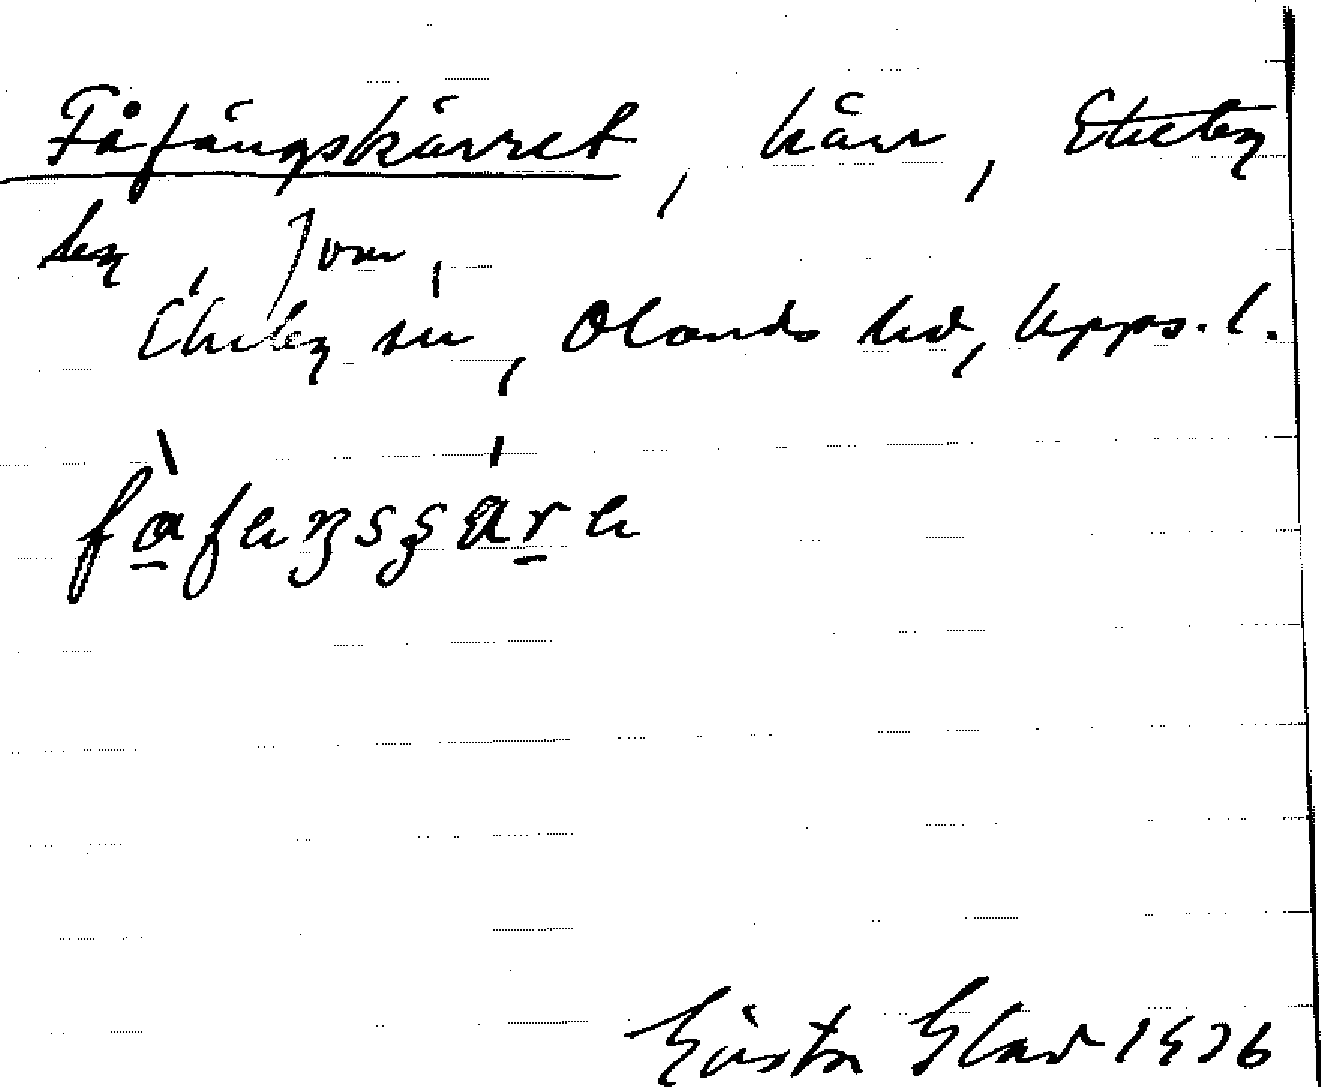 Fåfängskärret, kärr, Ekeby
by,
Ekeby sn, Olands hd, Upps. l.
fåfeŋsçäre
Gösta Glad 1926